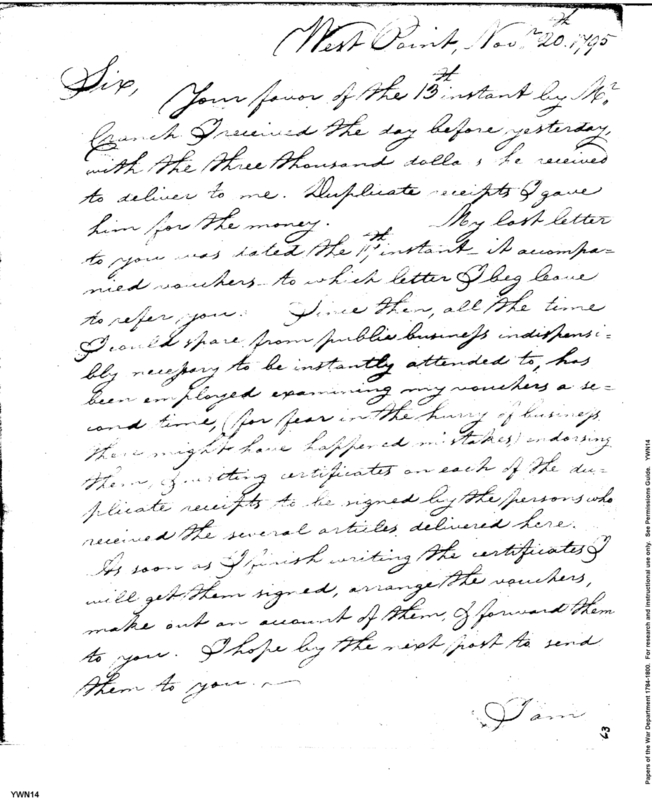 West Point, Novr. 20th. 1795
Sir,
Your favor of the 13th instant by Mr.
Cranch I received the day before yesterday,
with the three thousand dollars he received
to deliver to me. Duplicate receipts I gave
him for the money. My last letter
to you was dated the instant - it accompa=
nied vouchers - to which letter I beg leave
to refer you. Since then, all the time
I could spare from public business indispensi=
bly necessary to be instantly attended to, has
been employed examining my vouchers a se=
cond time, (for fear in the hurry of business
there might have happened mistakes) endorsing
them, & writing certificates on each of the du=
plicate receipts to be signed by the persons who
received the several articles delivered here.
As soon as I finish writing the certificates I
will get them signed, arrange the vouchers,
make out an account of them, & forward them
to you. I hope by the next post to send
them to you.
I am
63
Papers of the War Department 1784-1800. For research and instructional use only. See Permissions Guide. YWN14
YWN14